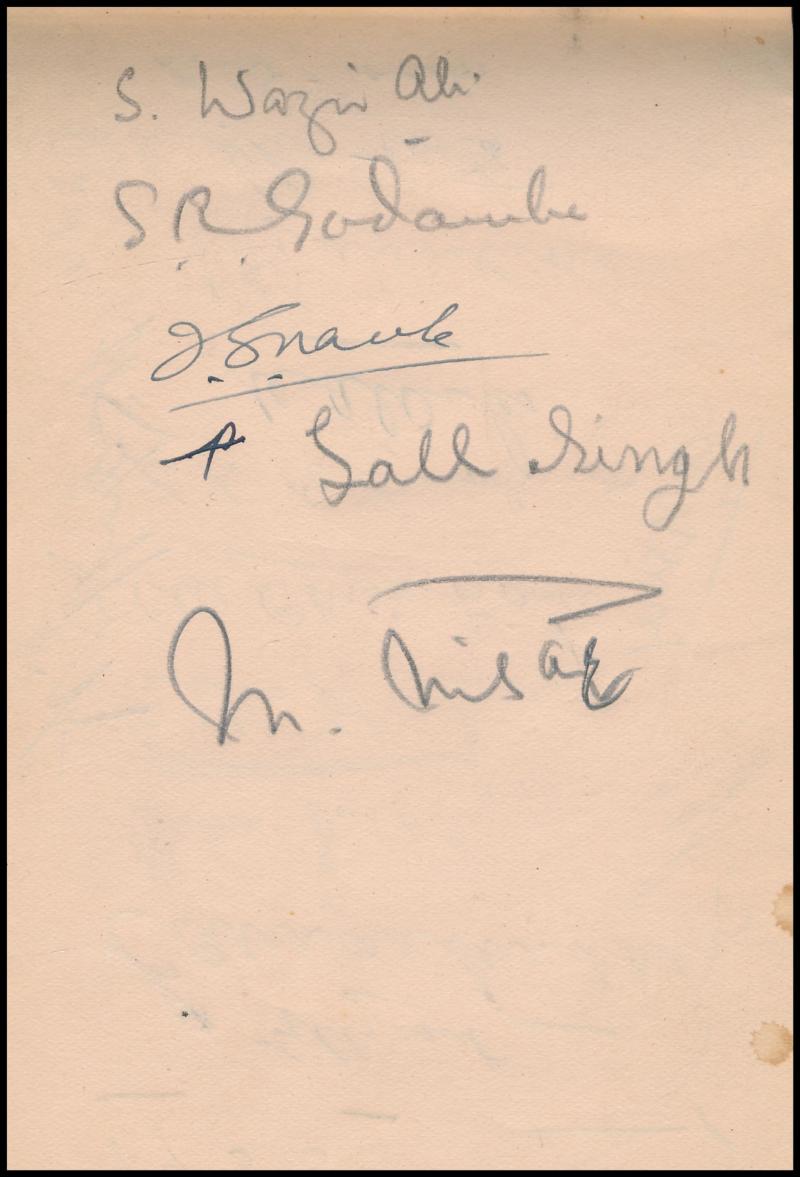 S. Wazir Ali
S. R. Godambe
J. G. Navle
Lall Singh
M. Nisar